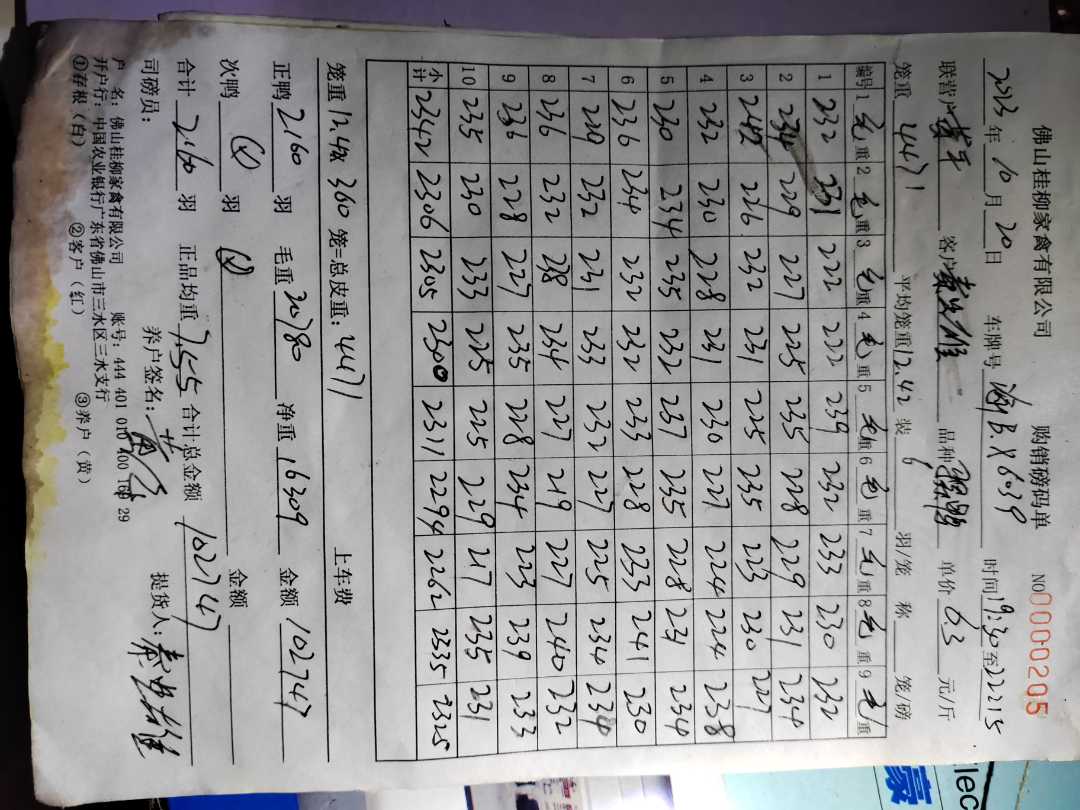 佛山桂柳家禽有限公司 购销磅码单 NO0000205
2023年10月20日 车牌号 时间19:30至22215
联营户 客户 品种 单价6.3元/斤
笼重4471 平均笼重12.42装6羽/笼 称 笼/磅
编号 1毛重 2毛重 3毛重 4毛重 5毛重 6毛重 7毛重 8毛重 9毛重
1 232 231 222 222 239 232 233 230 232
2 234 229 227 225 235 228 229 231 234
3 242 226 232 231 225 235 223 230 227
4 232 230 228 231 230 227 224 224 238
5 230 234 235 232 237 235 228 231 234
6 236 234 232 232 233 228 233 241 230
7 229 232 231 233 232 227 225 234 234
8 236 232 238 234 227 219 227 240 232
9 236 228 227 235 228 234 223 239 233
10 235 230 233 225 225 229 217 235 231
小计 2342 2306 2305 2300 2311 2294 2262 2335 2325
笼重12.42 360笼=总皮重:4471 上车费
正鸭2160羽 毛重20780 净重16309 金额102747
次鸭 羽 金额
合计2160羽 正品均重7.55 合计总金额102747
司磅员: 养户签名: 提货人:
户 名:佛山桂柳家禽有限公司 账号:444 401 010 400 29
开户行:中国农业银行广东省佛山市三水区三水支行
①存根(白) ②客户(红) ③养户(黄)